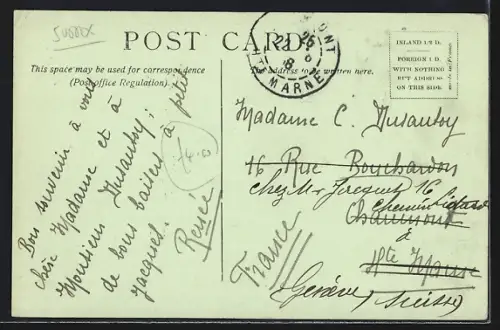 SUSSEX
POST CARD
This space may be used for correspondence
(Post office Regulation).
The address to be written here.
INLAND 1/2 D.
FOREIGN 1 D.
WITH NOTHING
BUT ADDRESS
ON THIS SIDE.
MONT
HTE MARNE
Bon souvenir à vous
chère Madame et à
Monsieur Dusautoy;
de bons baisers à petit
Jacques.
Renée
£4.00
Madame C. Dusautoy
16 Rue Bouchardon
chez Mr 16
chemin
Chaumont
à
Hte Marne
Genève (Suisse)
France